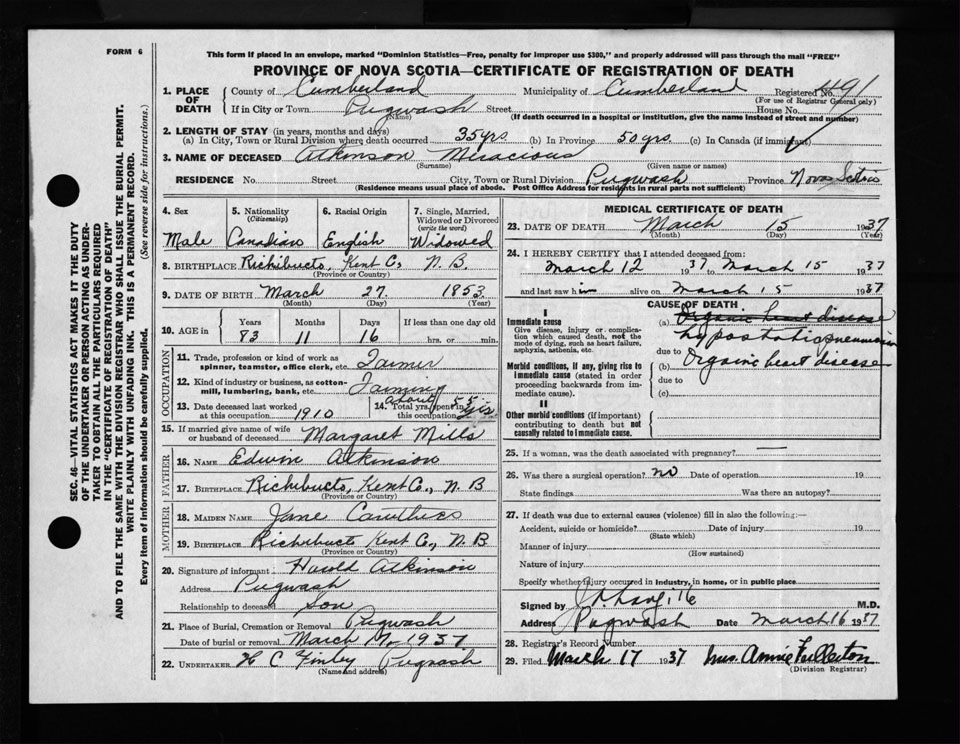 FORM 6
This form if placed in an envelope, marked "Dominion Statistics—Free, penalty for improper use $300," and properly addressed will pass through the mail "FREE"
PROVINCE OF NOVA SCOTIA—CERTIFICATE OF REGISTRATION OF DEATH
1. PLACE OF DEATH County of Cumberland Municipality of Cumberland Registered No. 491
(For use of Registrar General only)
If in City or Town Pugwash Street House No.
(Name) (If death occurred in a hospital or institution, give the name instead of street and number)
2. LENGTH OF STAY (in years, months and days)
(a) In City, Town or Rural Division where death occurred 35 yrs. (b) In Province 50 yrs. (c) In Canada (if immigrant)
3. NAME OF DECEASED Atkinson
(Surname) (Given name or names)
RESIDENCE No. Street City, Town or Rural Division Pugwash Province Nova Scotia
(Residence means usual place of abode. Post Office Address for residents in rural parts not sufficient)
4. Sex Male
5. Nationality (Citizenship) Canadian
6. Racial Origin English
7. Single, Married, Widowed or Divorced (write the word) Widowed
8. BIRTHPLACE Richibucto, Kent Co, N. B.
(Province or Country)
9. DATE OF BIRTH March 27. 1853.
(Month) (Day) (Year)
10. AGE in Years 83 Months 11 Days 16 If less than one day old hrs. or min.
OCCUPATION
11. Trade, profession or kind of work as spinner, teamster, office clerk, etc. Farmer
12. Kind of industry or business, as cotton-mill, lumbering, bank, etc. Farming
13. Date deceased last worked at this occupation 1910
14. Total yrs. spent in this occupation about 55 yrs
15. If married give name of wife or husband of deceased Margaret Mills
FATHER
16. NAME Edwin Atkinson
17. BIRTHPLACE Richibucto, Kent Co., N. B
(Province or Country)
MOTHER
18. MAIDEN NAME Jane
19. BIRTHPLACE Richibucto Kent Co., N. B.
(Province or Country)
20. Signature of informant Harold Atkinson
Address Pugwash
Relationship to deceased Son
21. Place of Burial, Cremation or Removal Pugwash
Date of burial or removal March 17, 1937
22. UNDERTAKER H C Finley Pugwash
(Name and address)
MEDICAL CERTIFICATE OF DEATH
23. DATE OF DEATH March 15 1937
(Month) (Day) (Year)
24. I HEREBY CERTIFY that I attended deceased from:
March 12 1937 to March 15 1937
and last saw h im alive on March 15 1937
CAUSE OF DEATH
I
Immediate cause
Give disease, injury or complication which caused death, not the mode of dying, such as heart failure, asphyxia, asthenia, etc.
(a) Organic heart disease
hypostatic pneumonia
due to
Morbid conditions, if any, giving rise to immediate cause (stated in order proceeding backwards from immediate cause).
(b) Organic heart disease
due to
(c)
II
Other morbid conditions (if important) contributing to death but not causally related to immediate cause.
25. If a woman, was the death associated with pregnancy? —
26. Was there a surgical operation? no Date of operation 19
State findings Was there an autopsy?
27. If death was due to external causes (violence) fill in also the following:—
Accident, suicide or homicide? Date of injury 19
(State which)
Manner of injury
(How sustained)
Nature of injury
Specify whether injury occurred in industry, in home, or in public place
Signed by M.D.
Address Pugwash Date March 16 1937
28. Registrar's Record Number
29. Filed March 17 1937 Mrs. Annie Fullerton
(Division Registrar)
SEC. 46—VITAL STATISTICS ACT MAKES IT THE DUTY
OF THE UNDERTAKER OR PERSON ACTING AS UNDER-
TAKER TO OBTAIN ALL THE PARTICULARS REQUIRED
IN THE "CERTIFICATE OF REGISTRATION OF DEATH"
AND TO FILE THE SAME WITH THE DIVISION REGISTRAR WHO SHALL ISSUE THE BURIAL PERMIT.
WRITE PLAINLY WITH UNFADING INK. THIS IS A PERMANENT RECORD.
Every item of information should be carefully supplied. (See reverse side for instructions.)